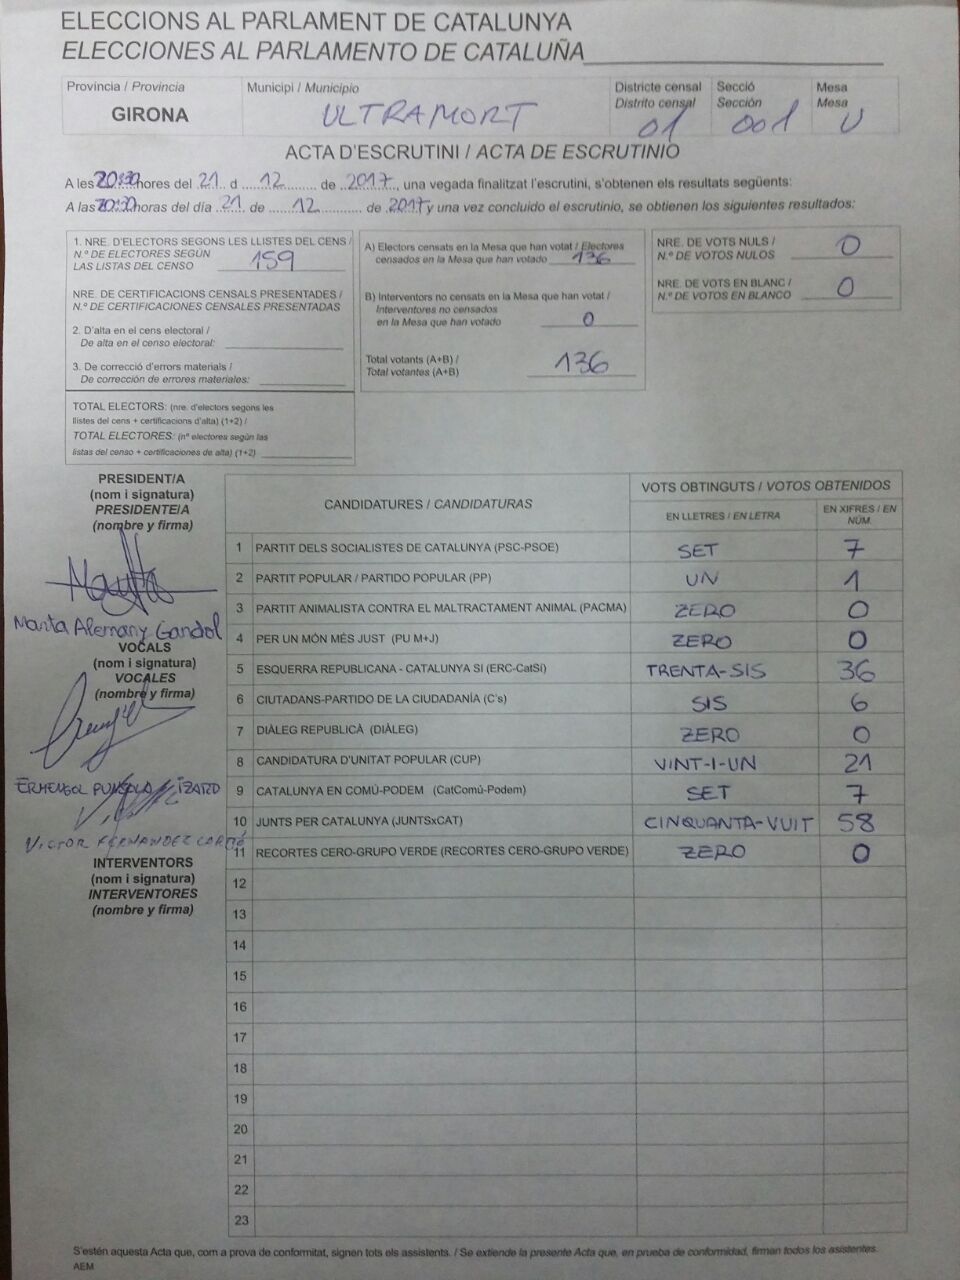 ELECCIONS AL PARLAMENT DE CATALUNYA
ELECCIONES AL PARLAMENTO DE CATALUÑA
Provincia / Provincia
GIRONA
Municipi / Municipio
ULTRAMORT
Districte censal
Distrito censal
01
Secció
Sección
001
Mesa
Mesa
U
ACTA D'ESCRUTINI / ACTA DE ESCRUTINIO
A les 20:30 hores del 21 d 12 de 2017, una vegada finalitzat l'escrutini, s'obtenen els resultats següents:
A las 20:30 horas del día 21 de 12 de 2017 y una vez concluido el escrutinio, se obtienen los siguientes resultados:
1. NRE. D'ELECTORS SEGONS LES LLISTES DEL CENS /
N.º DE ELECTORES SEGÚN
LAS LISTAS DEL CENSO 159
NRE. DE CERTIFICACIONS CENSALS PRESENTADES /
N.º DE CERTIFICACIONES CENSALES PRESENTADAS
2. D'alta en el cens electoral /
De alta en el censo electoral:
3. De correcció d'errors materials /
De corrección de errores materiales:
TOTAL ELECTORS: (nre. d'electors segons les
llistes del cens + certificacions d'alta) (1+2) /
TOTAL ELECTORES: (nº electores según las
listas del censo + certificaciones de alta) (1+2)
A) Electors censats en la Mesa que han votat / Electores
censados en la Mesa que han votado 136
B) Interventors no censats en la Mesa que han votat /
Interventores no censados
en la Mesa que han votado 0
Total votants (A+B) /
Total votantes (A+B) 136
NRE. DE VOTS NULS /
N.º DE VOTOS NULOS 0
NRE. DE VOTS EN BLANC /
N.º DE VOTOS EN BLANCO 0
PRESIDENT/A
(nom i signatura)
PRESIDENTE/A
(nombre y firma)
Marta Alemany Gandol
VOCALS
(nom i signatura)
VOCALES
(nombre y firma)
ERMENGOL PUNSOLA
VICTOR FERNANDEZ
INTERVENTORS
(nom i signatura)
INTERVENTORES
(nombre y firma)
CANDIDATURES / CANDIDATURAS
VOTS OBTINGUTS / VOTOS OBTENIDOS
EN LLETRES / EN LETRA
EN XIFRES / EN
NÚM.
1 PARTIT DELS SOCIALISTES DE CATALUNYA (PSC-PSOE) SET 7
2 PARTIT POPULAR / PARTIDO POPULAR (PP) UN 1
3 PARTIT ANIMALISTA CONTRA EL MALTRACTAMENT ANIMAL (PACMA) ZERO 0
4 PER UN MÓN MÉS JUST (PU M+J) ZERO 0
5 ESQUERRA REPUBLICANA - CATALUNYA SI (ERC-CatSí) TRENTA-SIS 36
6 CIUTADANS-PARTIDO DE LA CIUDADANÍA (C's) SIS 6
7 DIÀLEG REPUBLICÀ (DIÀLEG) ZERO 0
8 CANDIDATURA D'UNITAT POPULAR (CUP) VINT-I-UN 21
9 CATALUNYA EN COMÚ-PODEM (CatComú-Podem) SET 7
10 JUNTS PER CATALUNYA (JUNTSxCAT) CINQUANTA-VUIT 58
11 RECORTES CERO-GRUPO VERDE (RECORTES CERO-GRUPO VERDE) ZERO 0
12
13
14
15
16
17
18
19
20
21
22
23
S'estén aquesta Acta que, com a prova de conformitat, signen tots els assistents. / Se extiende la presente Acta que, en prueba de conformidad, firman todos los asistentes.
AEM